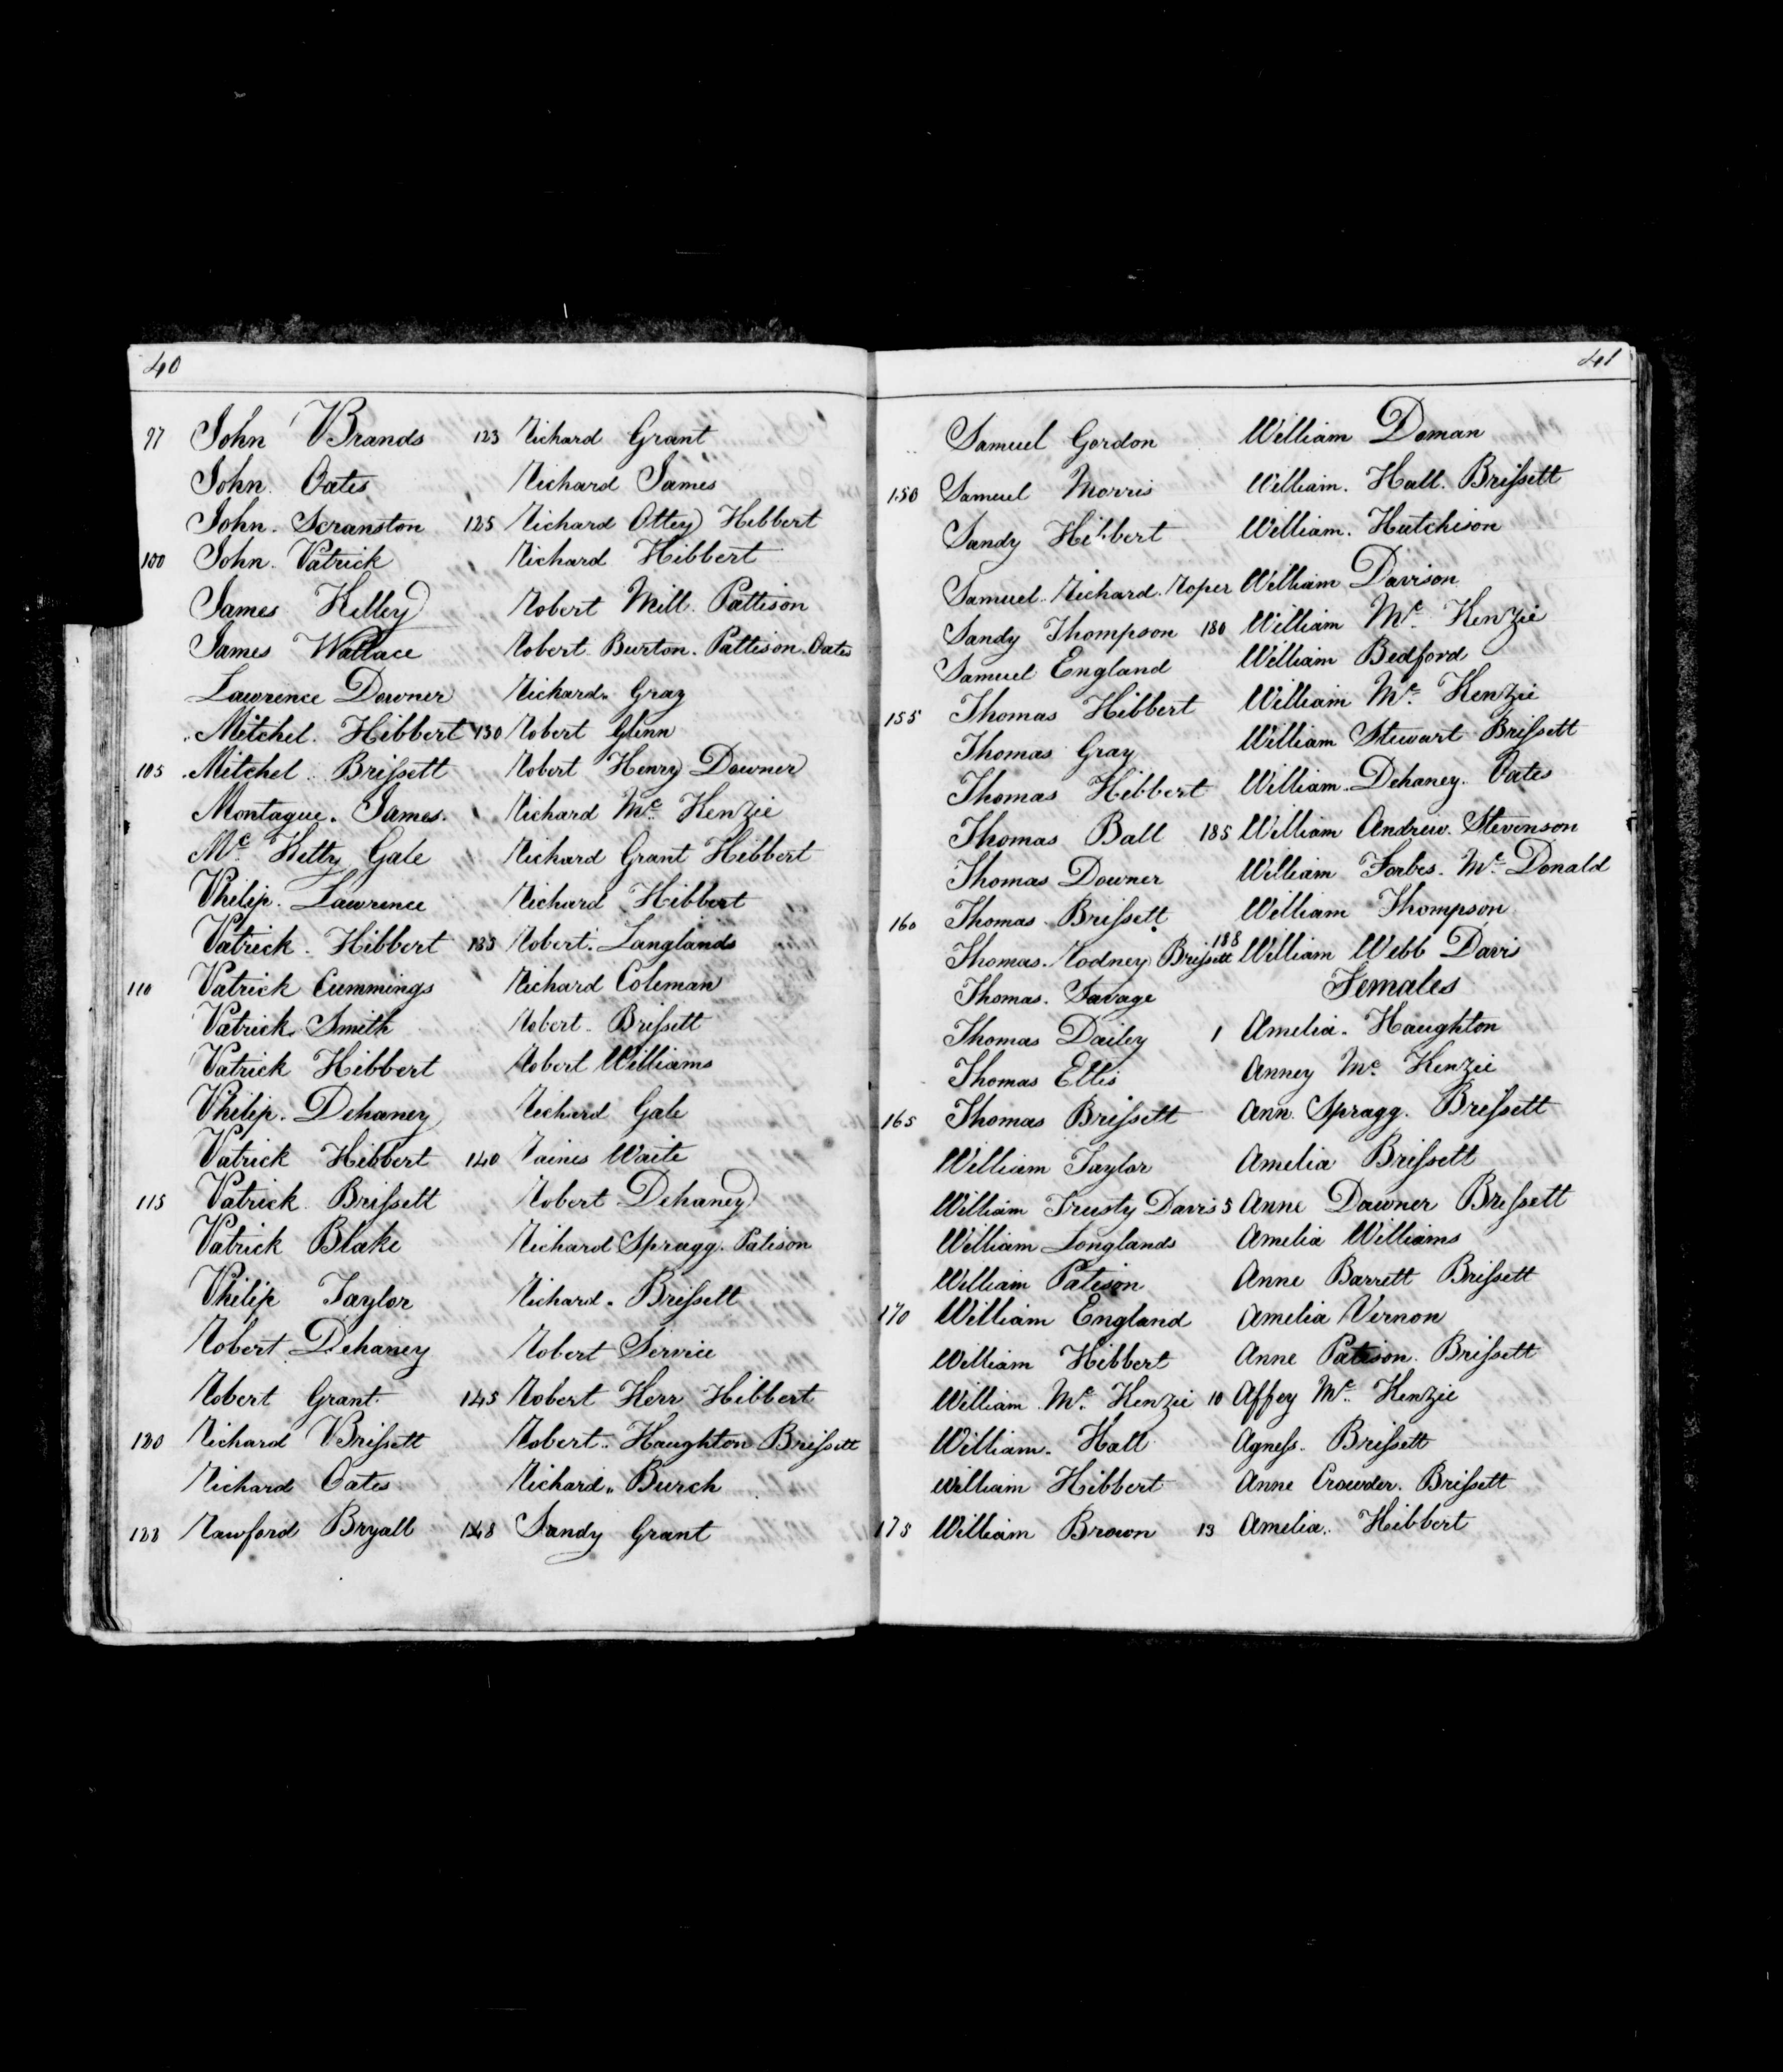 40
97 John Brands
John Oates
John. Scranston
100 John. Patrick
James Kelley
James Wallace
Lawrence Downer
Mitchel. Hibbert
105 Mitchel Brifsett
Montague. James.
Mc. Ketty Gale
Philip. Lawrence
Patrick. Hibbert
110 Patrick Cummings
Patrick. Smith
Patrick Hibbert
Philip. Dehaney
Patrick Hibbert
115 Patrick Brifsett
Patrick Blake
Philip Taylor
Robert Dehaney
Robert Grant
120 Richard Brifsett
Richard Oates
122 Rawford Bryall
123 Richard Grant
Richard James
125 Richard Ottey Hibbert
Richard Hibbert
Robert Mill. Pattison
Robert Burton. Pattison. Oates
Richard. Gray
130 Robert Glenn
Robert Henry Downer
Richard Mc. Kenzie
Richard Grant Hibbert
Richard Hibbert
135 Robert. Langlands
Richard Coleman
Robert. Brifsett
Robert Williams
Richard Gale
140 Raines Waite
Robert Dehaney
Richard Spragg. Patison
Richard. Brifsett
Robert Service
145 Robert Kerr Hibbert
Robert. Haughton Brifsett
Richard. Burch
148 Sandy Grant
41
Samuel Gordon
150 Samuel Morris
Sandy Hibbert
Samuel. Richard. Roper
Sandy Thompson
Samuel England
155 Thomas Hibbert
Thomas Gray
Thomas Hibbert
Thomas Ball
Thomas Downer
160 Thomas Brifsett
Thomas. Rodney Brifsett
Thomas. Savage
Thomas Dailey
Thomas Ellis
165 Thomas Brifsett
William Taylor
William Trusty Davis
William Longlands
William Patison
170 William England
William Hibbert
William Mc. Kenzie
William. Hall
William Hibbert
175 William Brown
William Doman
William. Hall. Brifsett
William. Hutchison
William Davison
180 William Mc. Kenzie
William Bedford
William Mc. Kenzie
William Stewart Brifsett
William. Dehaney. Oates
185 William Andrew. Stevenson
William Forbes. Mc. Donald
William Thompson
188 William Webb Davis
Females
1 Amelia. Haughton
Anney Mc. Kenzie
Ann. Spragg. Brifsett
Amelia Brifsett
5 Anne Downer Brifsett
Amelia Williams
Anne Barrett Brifsett
Amelia Vernon
Anne Patison. Brifsett
10 Affey Mc. Kenzie
Agnefs. Brifsett
Anne Crowder. Brifsett
13 Amelia. Hibbert